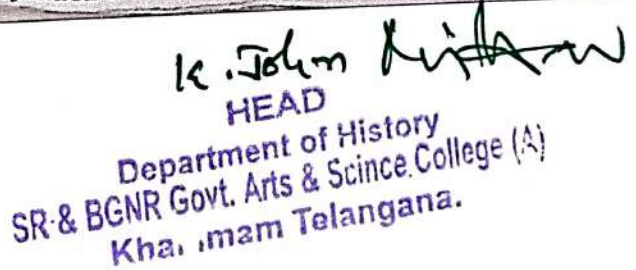 K. John
HEAD
Department of History
SR & BGNR Govt. Arts & Scince College (A)
Kha. .mam Telangana.